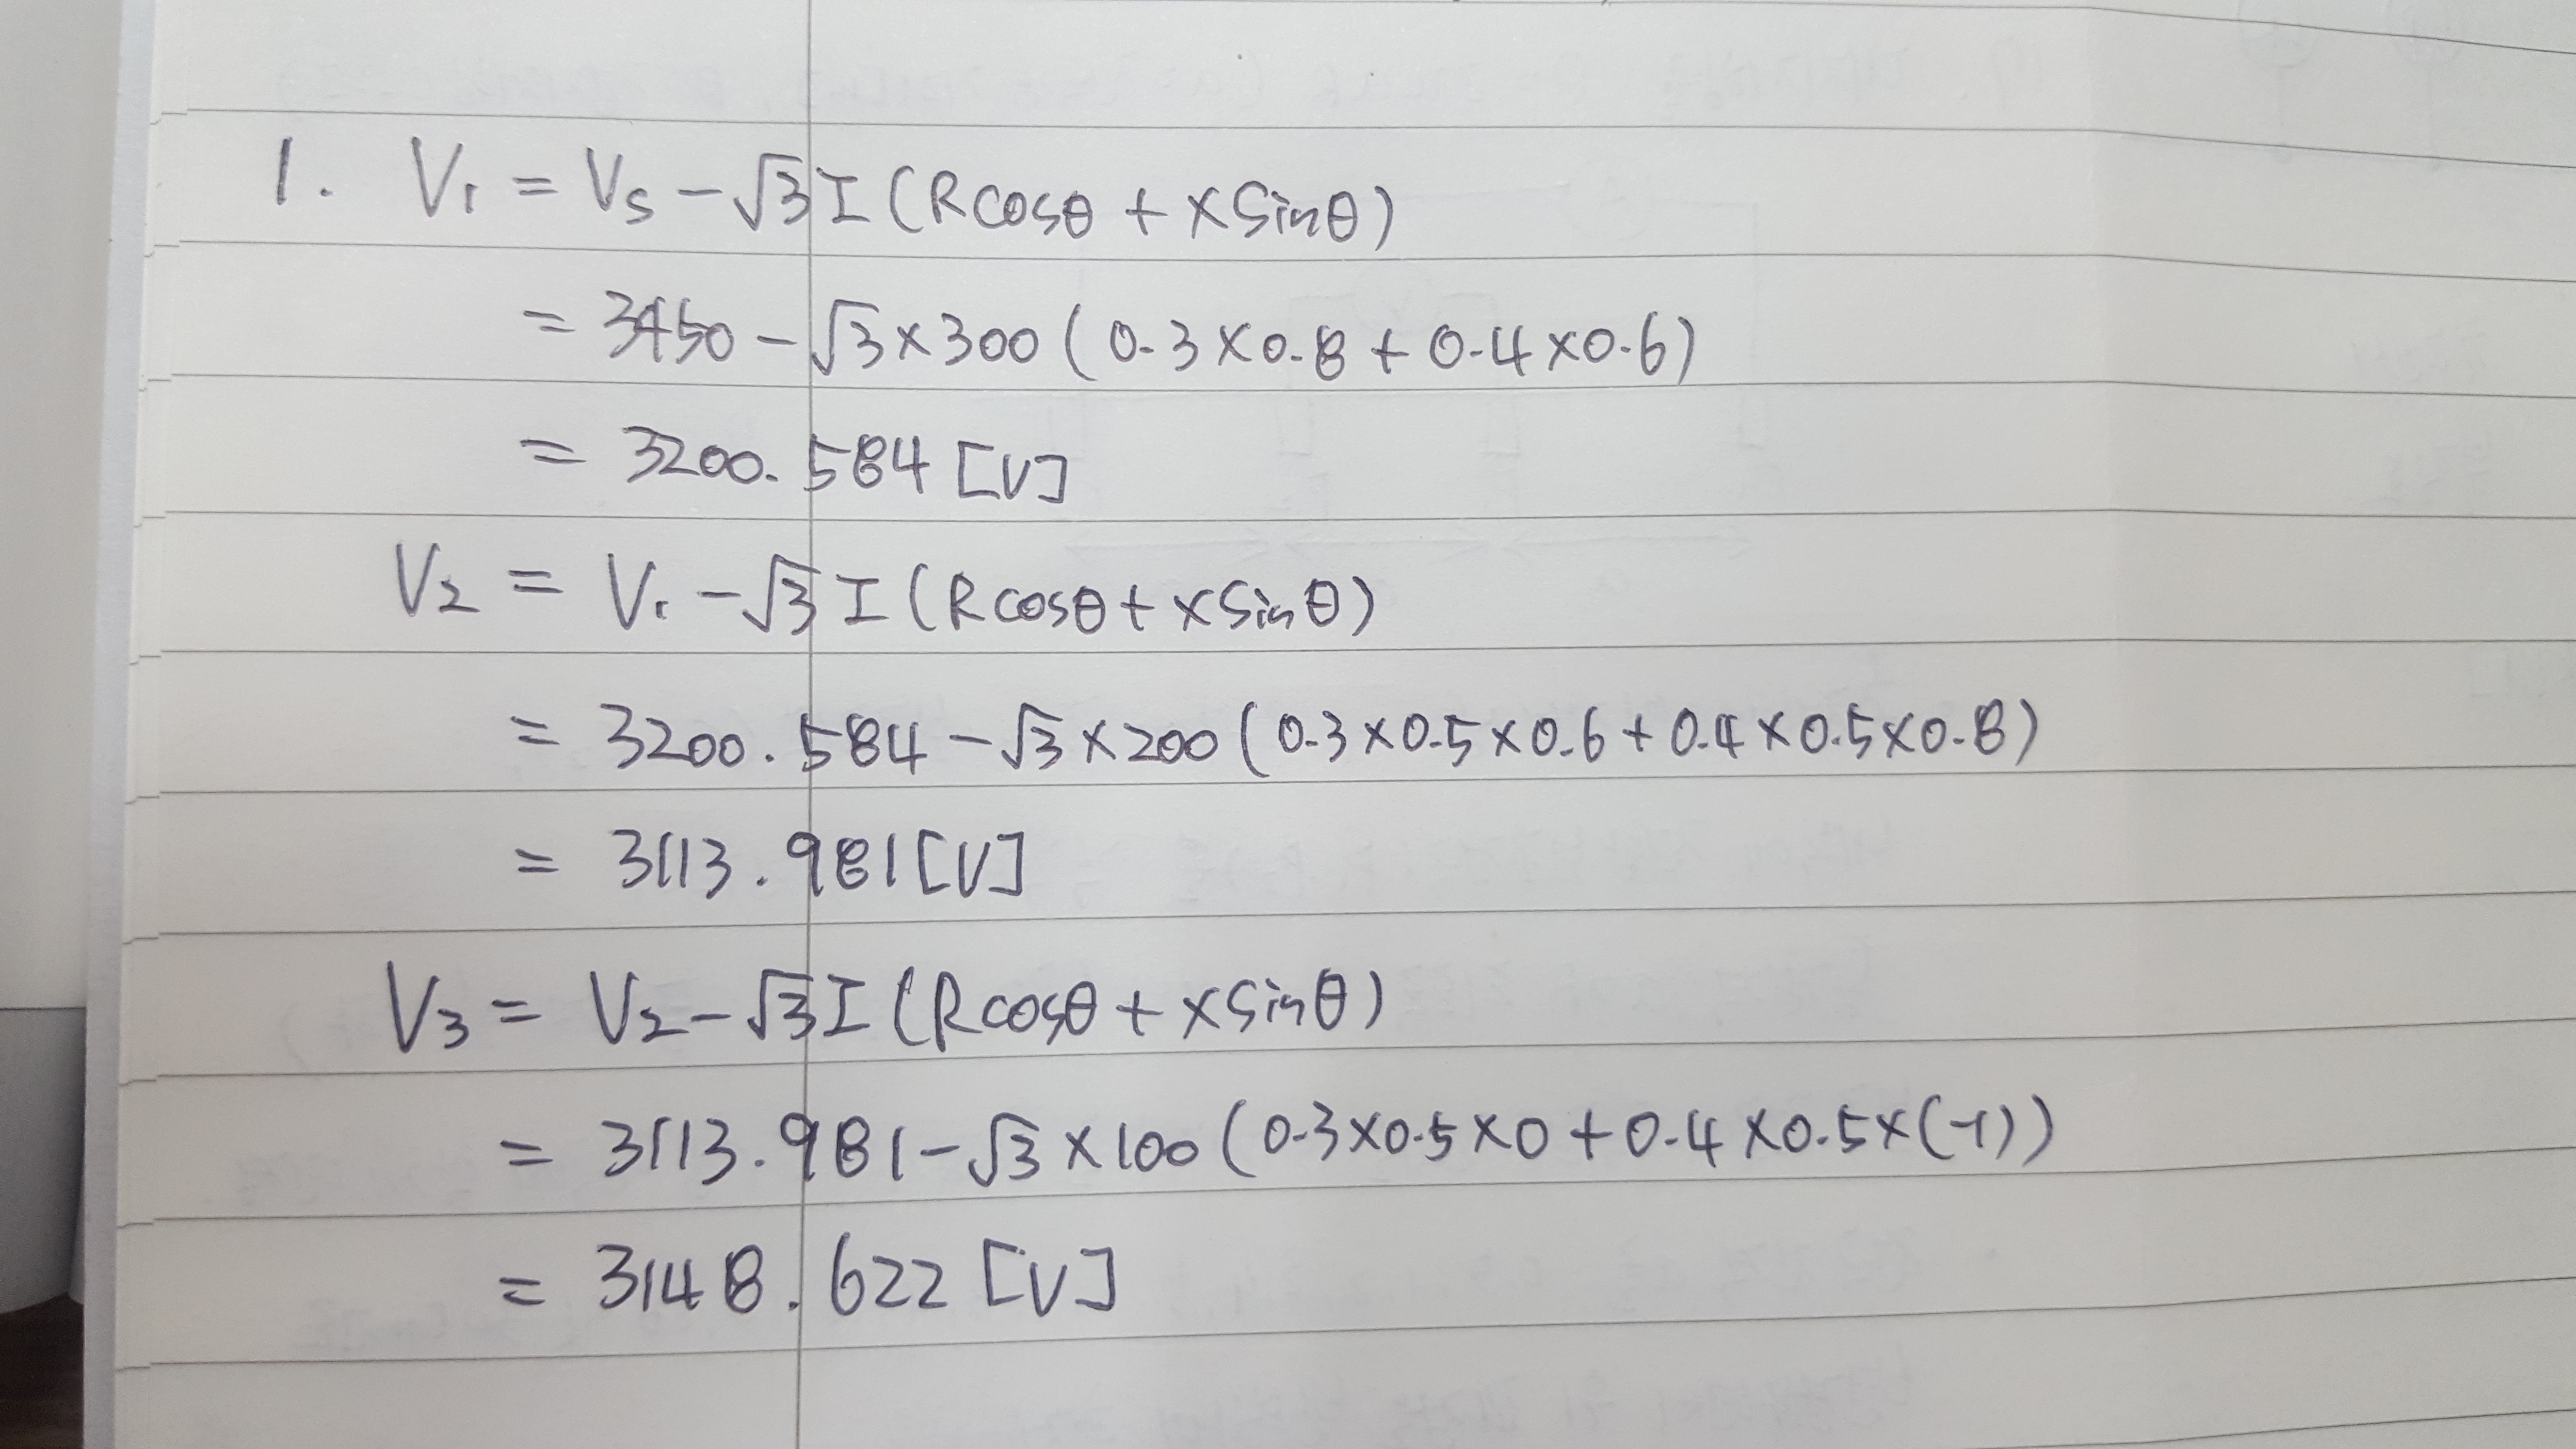 1. V₁ = Vs - √3 I (Rcosθ + xsinθ)
= 3450 - √3 × 300 ( 0.3 × 0.8 + 0.4 × 0.6)
= 3200.584 [V]
V₂ = V₁ - √3 I (Rcosθ + xsinθ)
= 3200.584 - √3 × 200 ( 0.3 × 0.5 × 0.6 + 0.4 × 0.5 × 0.8)
= 3113.981 [V]
V₃ = V₂ - √3 I (Rcosθ + xsinθ)
= 3113.981 - √3 × 100 ( 0.3 × 0.5 × 0 + 0.4 × 0.5 × (-1))
= 3148.622 [V]